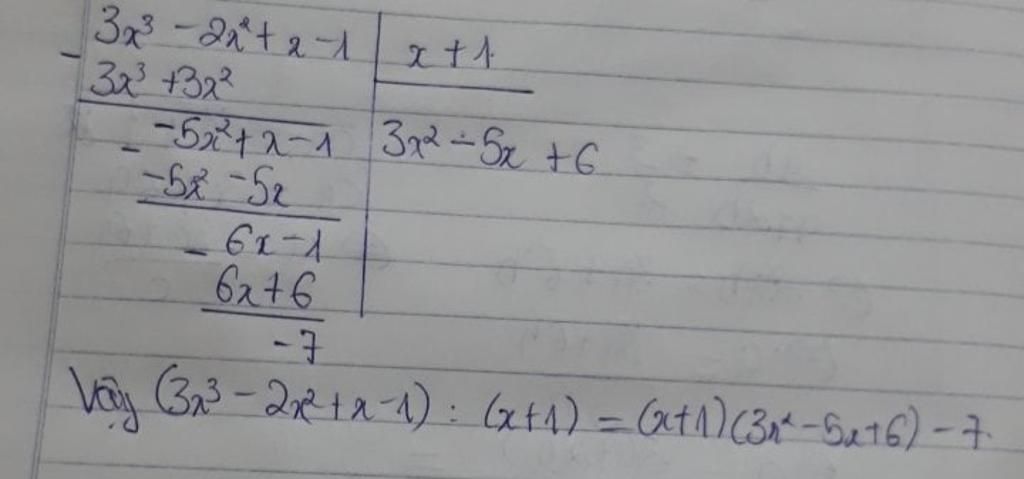 3x³ - 2x² + x - 1 | x + 1
- 3x³ + 3x²
-5x² + x - 1 | 3x² - 5x + 6
- -5x² - 5x
6x - 1
- 6x + 6
-7
Vậy (3x³ - 2x² + x - 1) : (x+1) = (x+1)(3x² - 5x + 6) - 7.